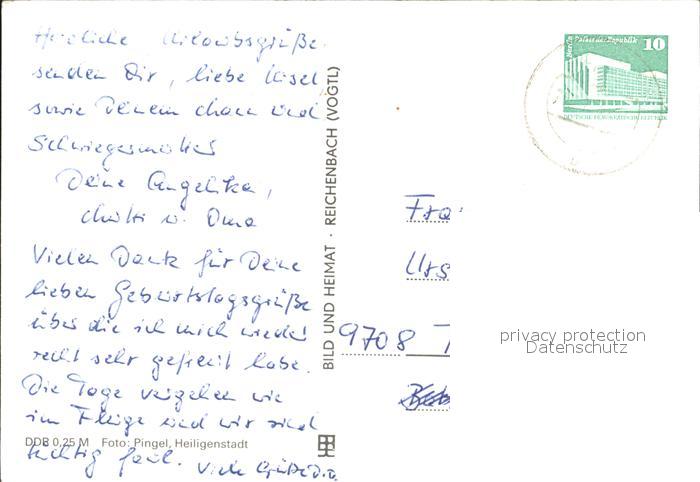 Herzliche Urlaubsgrüße
senden Dir, liebe Ursel
sowie Deinem und
Schwiegermutter
Deine Angelika,
u. Oma
Vielen Dank für Deine
lieben Geburtstagsgrüße
über die ich mich wieder
recht sehr gefreut habe.
Die Tage vergehen wie
im Fluge und wir sind
richtig faul. Viele Grüße
DDB 0,25 M Foto: Pingel, Heiligenstadt
BILD UND HEIMAT · REICHENBACH (VOGTL)
Berlin Palast der Republik 10
DEUTSCHE DEMOKRATISCHE REPUBLIK
Fra
Urs
9708 T
privacy protection
Datenschutz